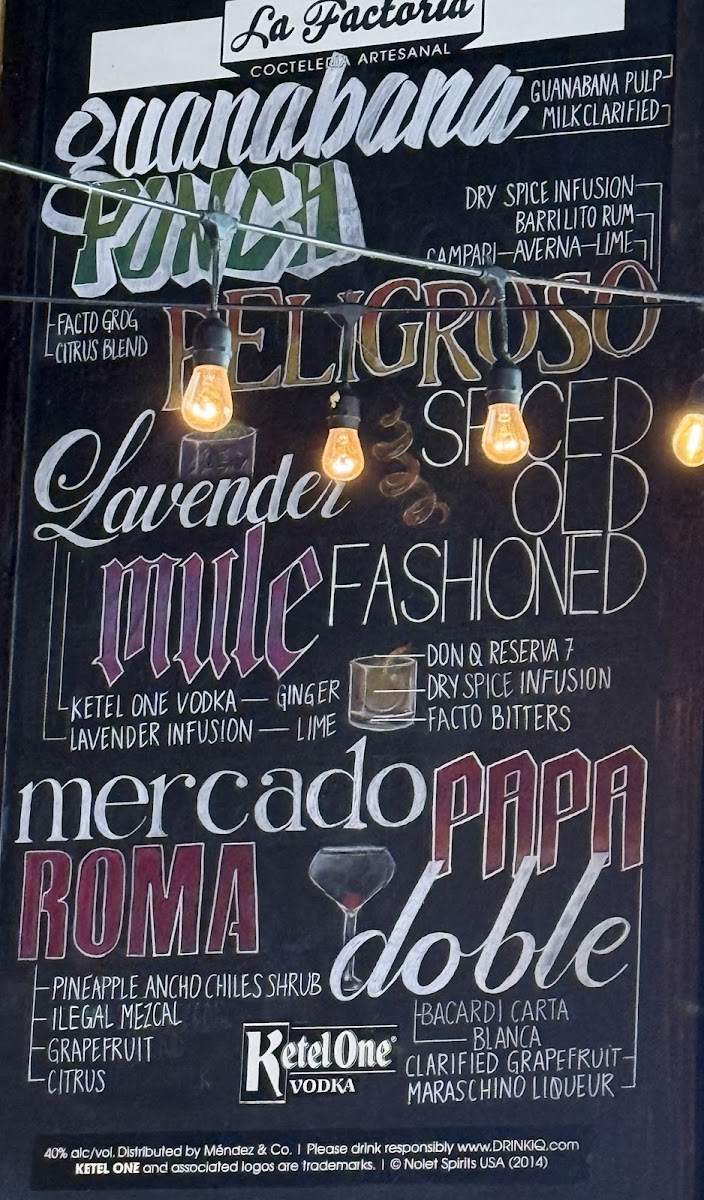 La Factoría
COCTELERÍA ARTESANAL
guanabana
PUNCH
GUANABANA PULP
MILK CLARIFIED
FACTO GROG
CITRUS BLEND
DRY SPICE INFUSION
BARRILITO RUM
CAMPARI—AVERNA—LIME
PELIGROSO
SPICED
OLD
FASHIONED
DON Q RESERVA 7
DRY SPICE INFUSION
FACTO BITTERS
Lavender
mule
KETEL ONE VODKA — GINGER
LAVENDER INFUSION — LIME
mercado
ROMA
PINEAPPLE ANCHO CHILES SHRUB
ILEGAL MEZCAL
GRAPEFRUIT
CITRUS
PAPA
doble
BACARDI CARTA
BLANCA
CLARIFIED GRAPEFRUIT
MARASCHINO LIQUEUR
Ketel One®
VODKA
40% alc/vol. Distributed by Méndez & Co. | Please drink responsibly www.DRINKIQ.com
KETEL ONE and associated logos are trademarks. | © Nolet Spirits USA (2014)